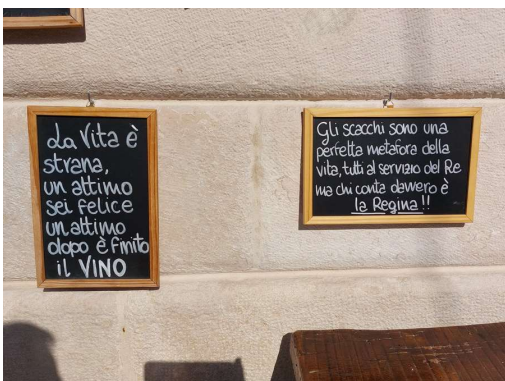 La Vita è
strana,
un attimo
sei felice
un attimo
dopo è finito
il VINO
Gli scacchi sono una
perfetta metafora della
vita, tutti al servizio del Re
ma chi conta davvero è
la Regina!!